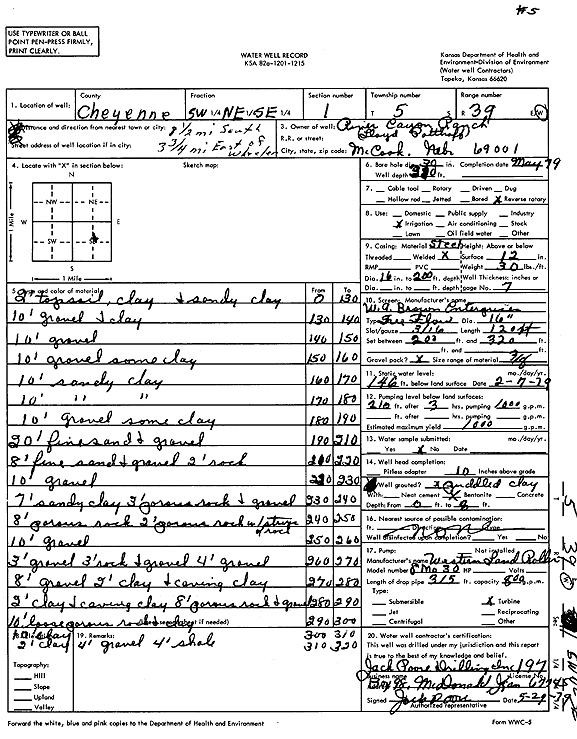 #5
USE TYPEWRITER OR BALL
POINT PEN-PRESS FIRMLY,
PRINT CLEARLY.
WATER WELL RECORD
KSA 82a-1201-1215
Kansas Department of Health and
Environment-Division of Environment
(Water well Contractors)
Topeka, Kansas 66620
1. Location of well:
County
Cheyenne
Fraction
SW 1/4 NE 1/4 SE 1/4
Section number
1
Township number
T 5 S
Range number
R 39 E/W
Distance and direction from nearest town or city: 8 1/2 mi South
Street address of well location if in city: 3 3/4 mi East of
3. Owner of well:
R.R. or street:
City, state, zip code: McCook, Neb 69001
4. Locate with "X" in section below:
Sketch map:
N
NW NE
W E
SW SE
S
1 Mile
1 Mile
6. Bore hole dia. 30 in. Completion date May 79
Well depth 320 ft.
7. Cable tool Rotary Driven Dug
Hollow rod Jetted Bored X Reverse rotary
8. Use: Domestic Public supply Industry
X Irrigation Air conditioning Stock
Lawn Oil field water Other
9. Casing: Material Steel Height: Above or below
Threaded Welded X Surface 12 in.
RMP PVC Weight 30 lbs./ft.
Dia. 16 in. to 200 ft. depth Wall thickness: inches or
Dia. in. to ft. depth gage No. 7
5. Type and color of material From To
2' topsoil, clay & sandy clay 0 130
10' gravel & clay 130 140
10' gravel 140 150
10' gravel some clay 150 160
10' sandy clay 160 170
10' " " 170 180
10' gravel some clay 180 190
20' fine sand & gravel 190 210
8' fine sand & gravel 2' rock 210 220
10' gravel 220 230
7' sandy clay 3' porous rock & gravel 230 240
8' porous rock 2' porous rock w/ strips of rock 240 250
10' gravel 250 260
3' gravel 3' rock & gravel 4' gravel 260 270
8' gravel 2' clay & caving clay 270 280
2' clay & caving clay 8' porous rock & gravel 280 290
10' loose porous rock & clay 290 300
300 310
2' clay 4' gravel 4' shale 310 320
10. Screen: Manufacturer's name
W.G. Brown Enterprises
Type Free Flow Dia. 16"
Slot/gauge 3/16 Length 120 ft
Set between 200 ft. and 320 ft.
ft. and ft.
Gravel pack? X Size range of material 3/8
11. Static water level: mo./day/yr.
146 ft. below land surface Date 2-7-79
12. Pumping level below land surface:
210 ft. after 3 hrs. pumping 1000 g.p.m.
ft. after hrs. pumping g.p.m.
Estimated maximum yield 1000 g.p.m.
13. Water sample submitted: mo./day/yr.
Yes X No Date
14. Well head completion:
Pitless adapter 10 Inches above grade
Well grouted? X puddled clay
With: Neat cement X Bentonite Concrete
Depth: From 0 ft. to 8 ft.
16. Nearest source of possible contamination:
ft. Direction Type
Well disinfected upon completion? Yes No
17. Pump: Not installed
Manufacturer's name Western Land Roller
Model number HP Volts
Length of drop pipe 315 ft. capacity 800 g.p.m.
Type:
Submersible X Turbine
Jet Reciprocating
Centrifugal Other
19. Remarks:
Topography:
Hill
Slope
Upland
Valley
20. Water well contractor's certification:
This well was drilled under my jurisdiction and this report
is true to the best of my knowledge and belief.
Jack Poore Drilling Inc 197
Business name License No.
Box 98 McDonald Kan 67745
Signed Jack Poore Date 5-29-79
Authorized representative
Forward the white, blue and pink copies to the Department of Health and Environment
Form WWC-5